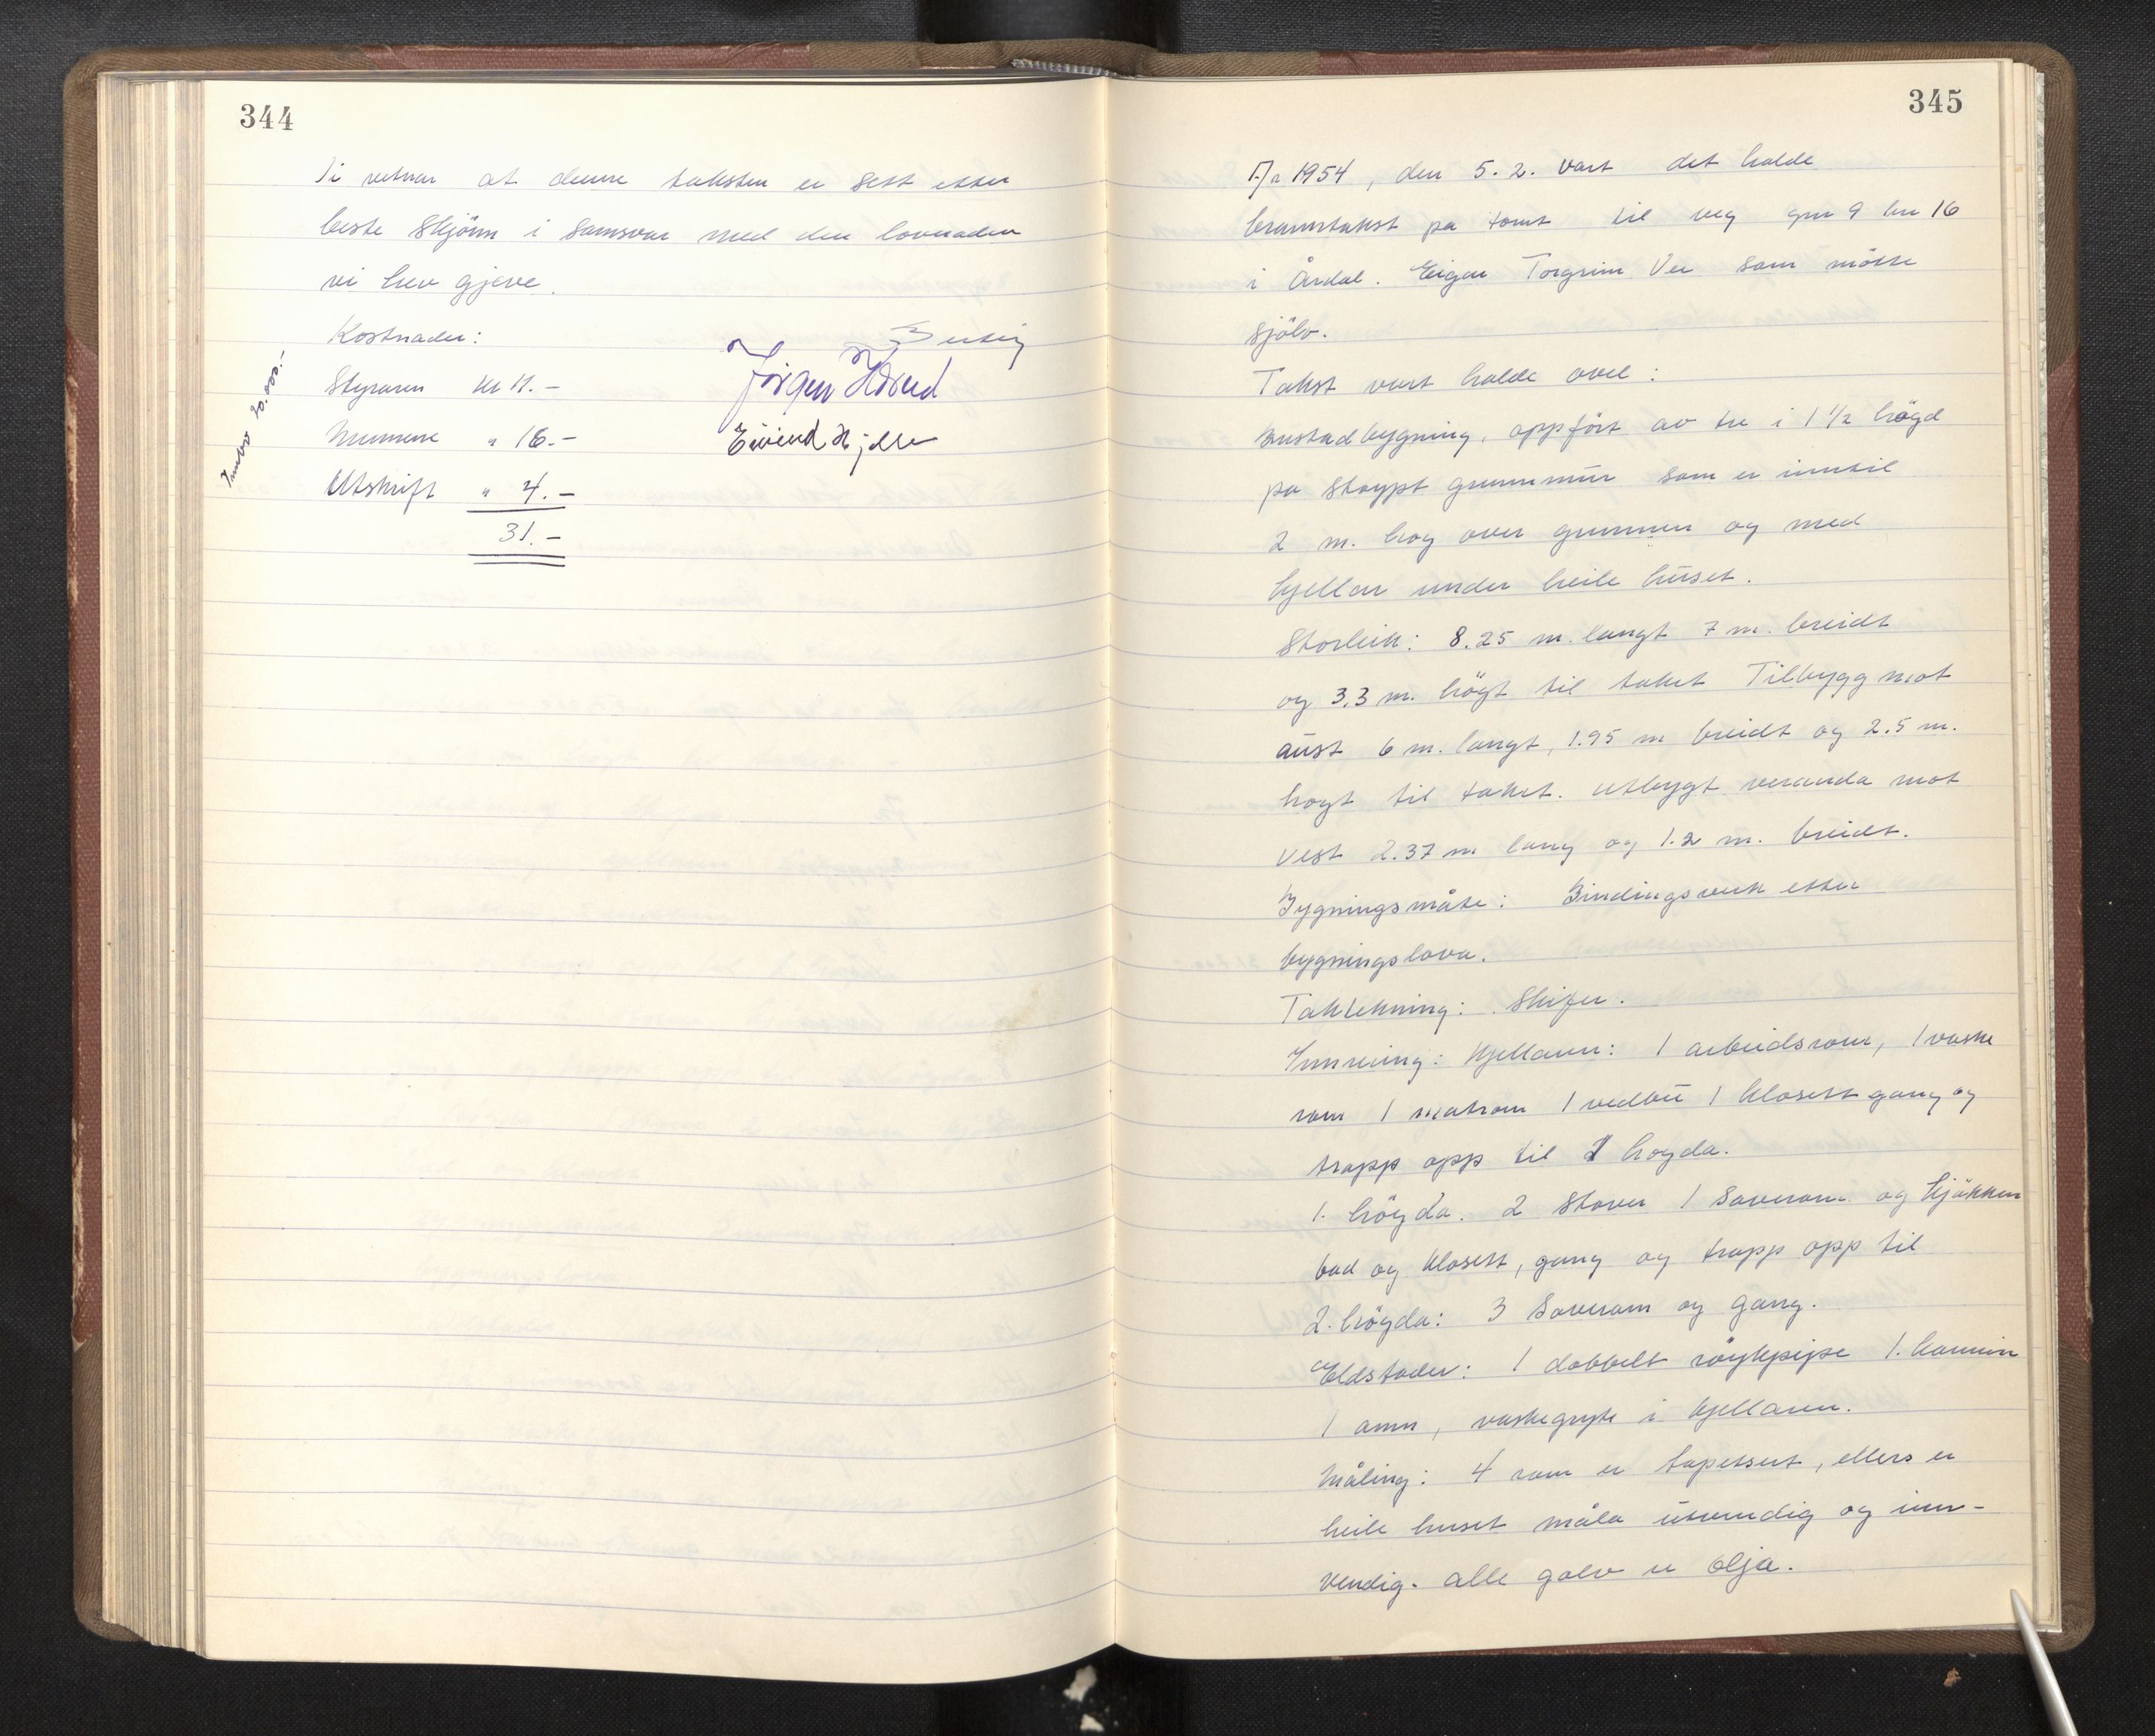 344
Vi vitnar at denne taksten er sett etter
beste skjönn i samsvar med den lovnaden
vi hev gjeve.
Kostnader:
Styraren kr 11.-
Mennene " 16.-
Utskrift " 4.-
31.-
Jörgen
Eivind
20.000.-
345
År 1954, den 5.2. vart det halde
branntakst på tomt til veg gnr 9 bnr 16
i Årdal. Eigar Torgrim Ve som mötte
sjölv.
Takst vart halde over:
Bustadbygning, oppfört av tre i 1 1/2 högd
på stoypt grunnmur som er inntil
2 m. hog over grunnen og med
kjellar under heile huset.
Storleik: 8.25 m. langt 7 m. breidt
og 3.3 m. högt til taket Tilbygg mot
aust 6 m. langt, 1.95 m breidt og 2.5 m.
hogt til taket. Utbygt veranda mot
vest 2.37 m lang og 1.2 m. breidt.
Bygningsmåte: Bindingsverk etter
bygningslova.
Taktekning: Skifer.
Innreiing: Kjellaren: 1 arbeidsrom, 1 vaske
rom 1 matrom 1 vedbu 1 klosett gang og
trapp opp til 1 hogda.
1. högda. 2 stover 1 soverom og kjökken
bad og klosett, gang og trapp opp til
2. högda: 3 soverom og gang.
Eldstader: 1 dobbelt röykpipe 1. kamin
1 omn, vaskegryte i kjellaren.
Måling: 4 rom er tapetsert, ellers er
heile huset måla utvendig og inn-
vendig. alle golv er olja.